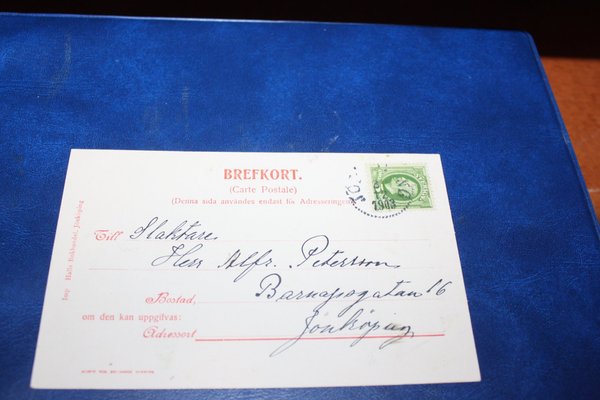 BREFKORT.
(Carte Postale)
(Denna sida användes endast för Adresseringen)
Till Slaktare
Herr Alfr. Petersson
Bostad, Barnarpsgatan 16
om den kan uppgifvas:
Adressort Jönköping
Imp. Halls Bokhandel, Jönköping
1903